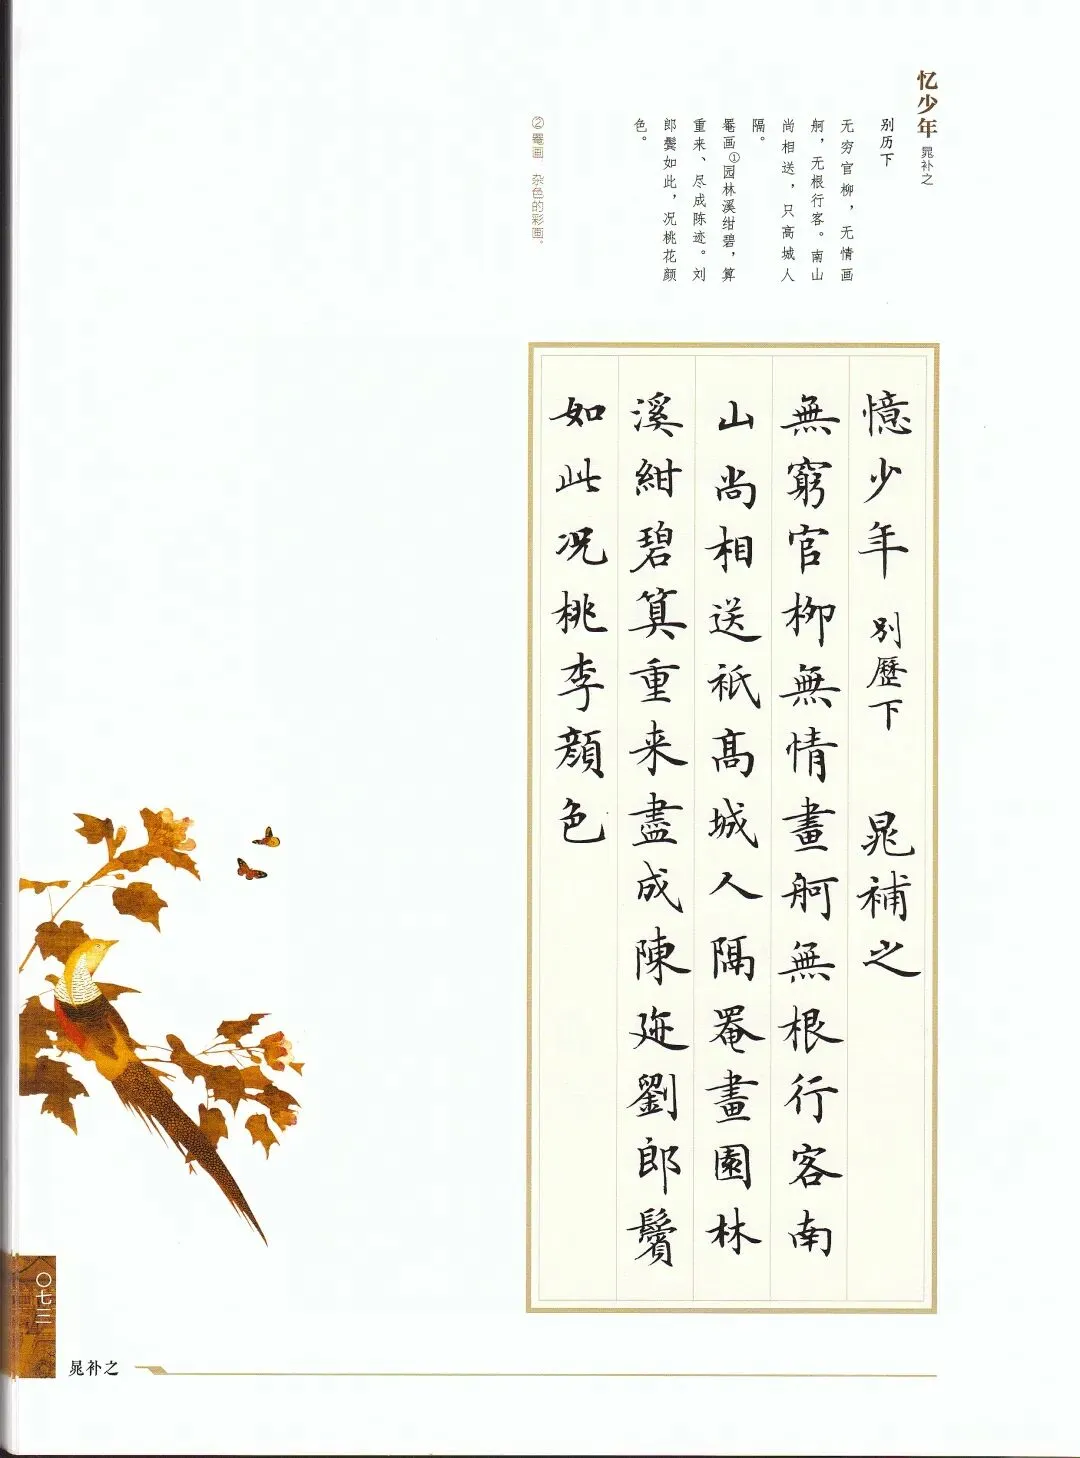 忆少年 晁补之
别历下
无穷官柳，无情画
舸，无根行客。南山
尚相送，只高城人
隔。
罨画①园林溪绀碧，算
重来、尽成陈迹。刘
郎鬓如此，况桃花颜
色。
② 罨画 杂色的彩画。
憶少年 别歷下 晁補之
無窮官柳無情畫舸無根行客南
山尚相送祇高城人隔罨畫園林
溪紺碧算重来盡成陳迹劉郎鬢
如此况桃李顔色
〇七三
晁补之